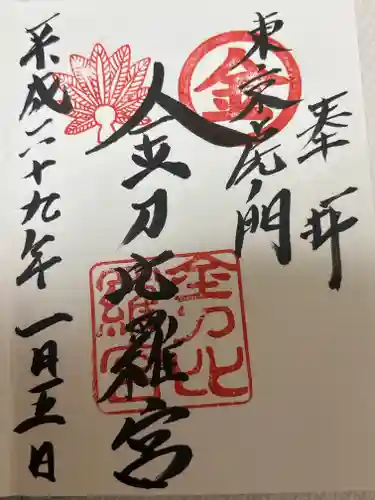 奉拝
東京虎ノ門
金
金刀比羅宮
金刀比羅宮
平成二十九年 一月五日